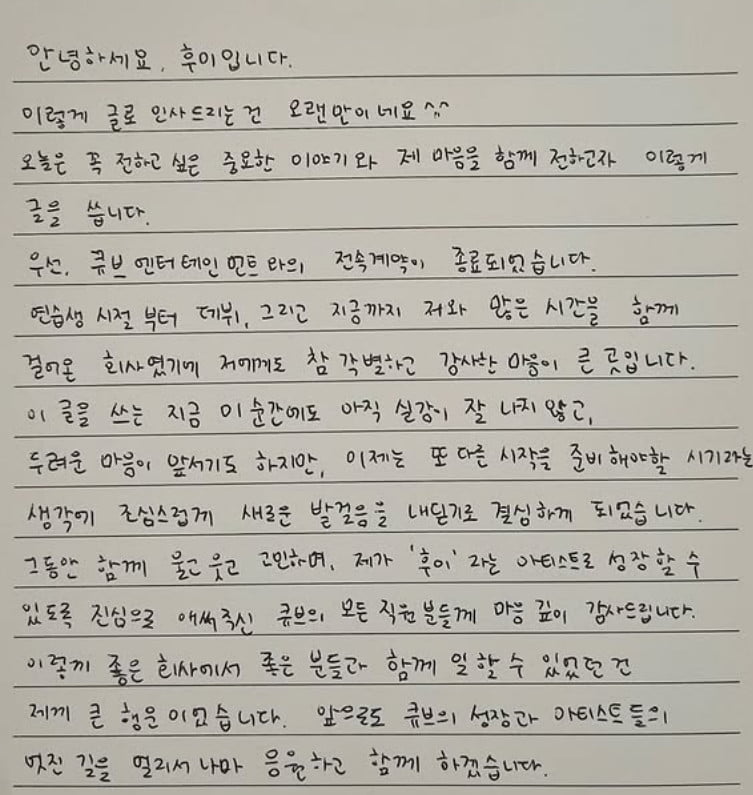 안녕하세요, 후이입니다.
이렇게 글로 인사드리는건 오랜만이네요^^
오늘은 꼭 전하고 싶은 중요한 이야기와 제 마음을 함께 전하고자 이렇게
글을 씁니다.
우선, 큐브 엔터테인먼트와의 전속계약이 종료되었습니다.
연습생 시절 부터 데뷔, 그리고 지금까지 저와 많은 시간을 함께
걸어온 회사였기에 저에게도 참 각별하고 감사한 마음이 큰 곳입니다.
이 글을 쓰는 지금 이 순간에도 아직 실감이 잘 나지 않고,
두려운 마음이 앞서기도 하지만, 이제는 또 다른 시작을 준비해야할 시기라는
생각에 조심스럽게 새로운 발걸음을 내딛기로 결심하게 되었습니다.
그동안 함께 울고 웃고 고민하며, 제가 '후이' 라는 아티스트로 성장할 수
있도록 진심으로 애써주신 큐브의 모든 직원분들께 마음 깊이 감사드립니다.
이렇게 좋은 회사에서 좋은 분들과 함께 일할 수 있었던 건
제게 큰 행운이었습니다. 앞으로도 큐브의 성장과 아티스트들의
멋진 길을 멀리서나마 응원하고 함께 하겠습니다.